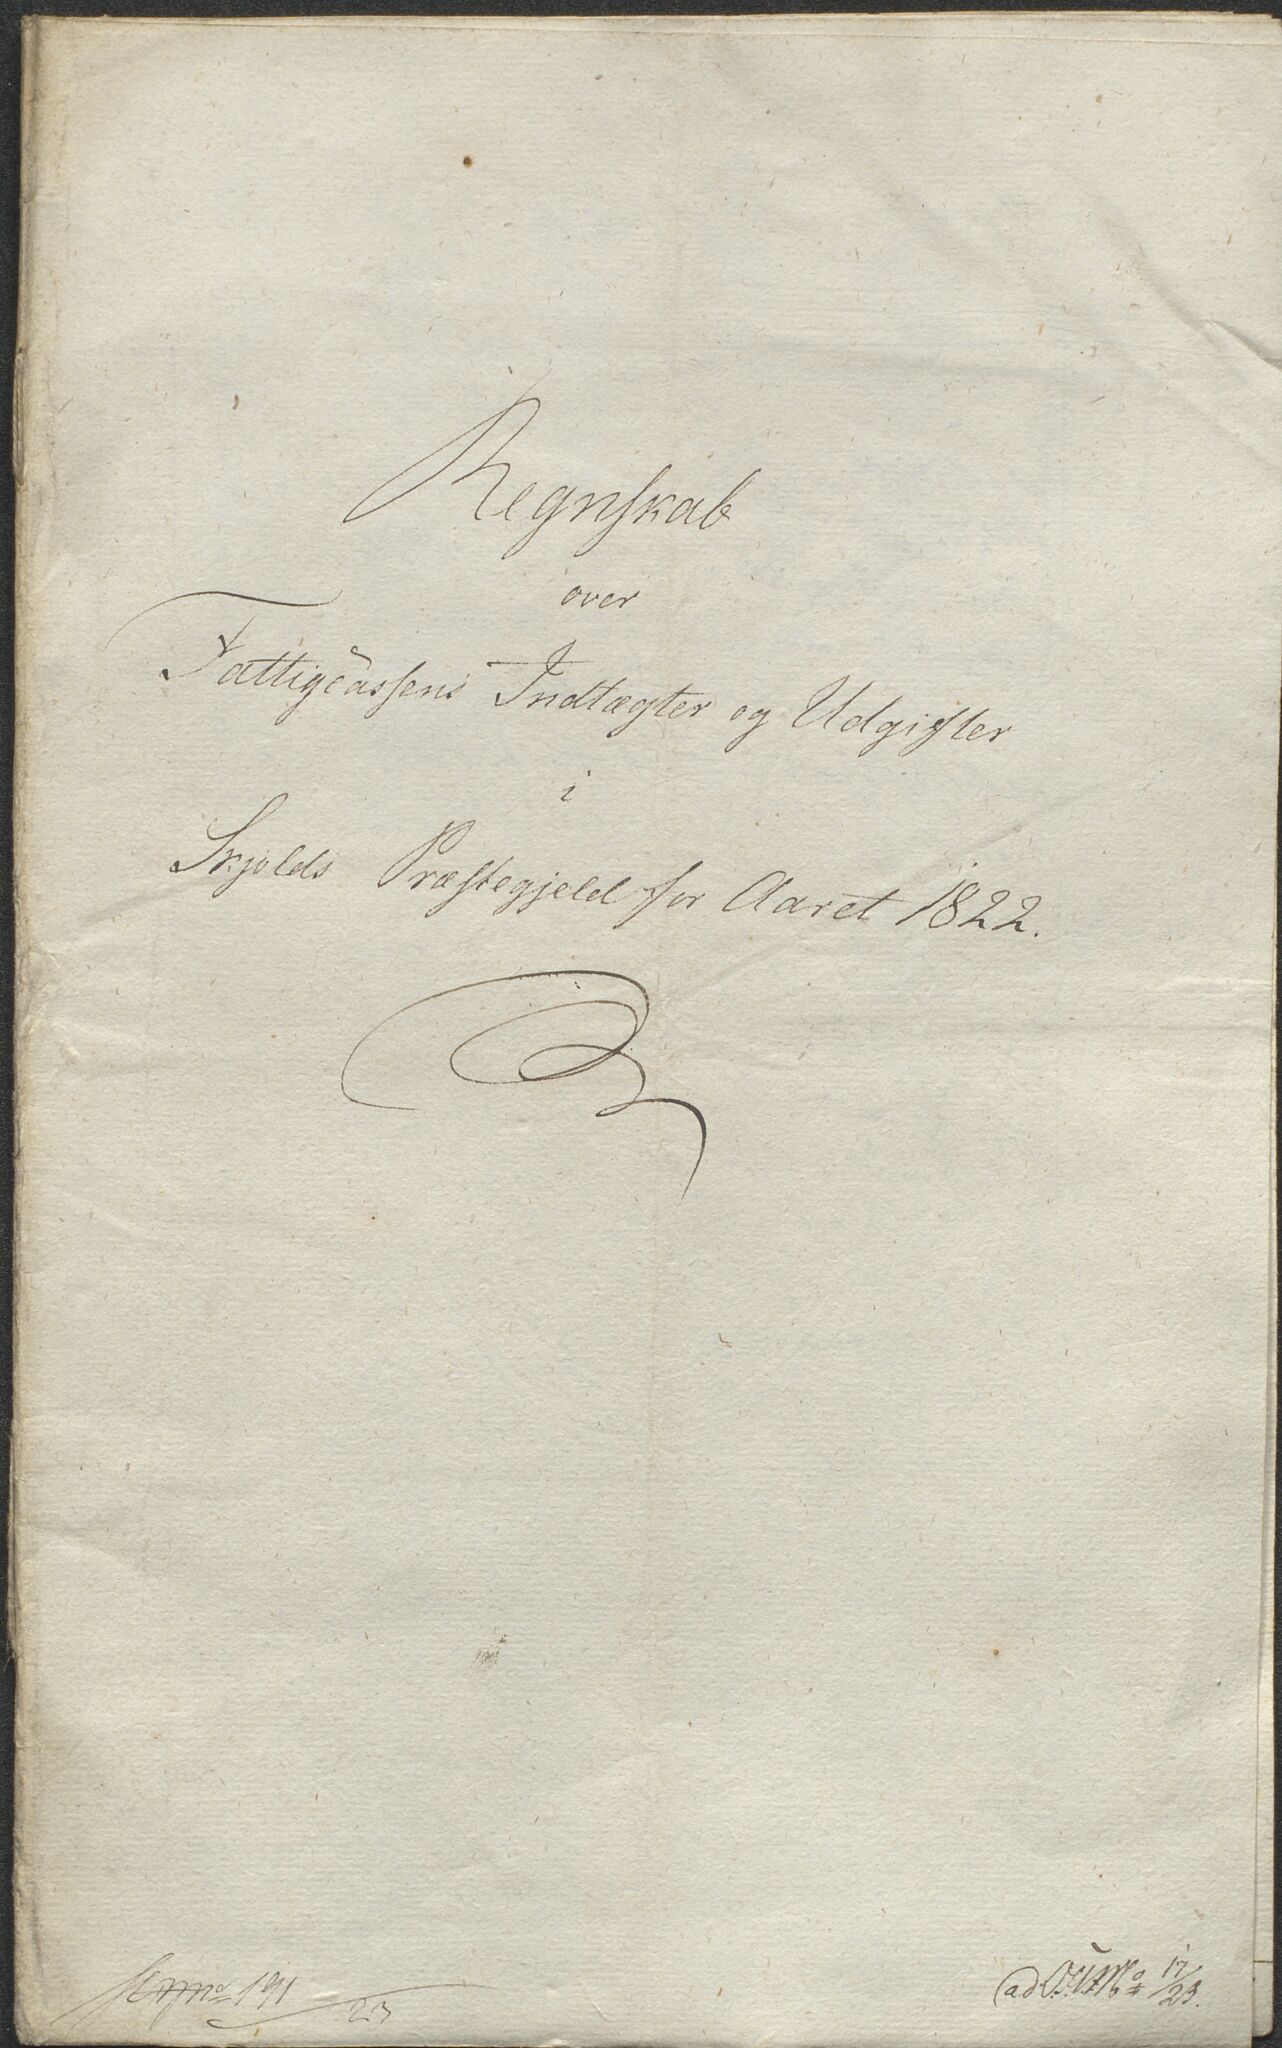 Regnskab
over
Fattigcassens Indtægter og Udgifter
i
Skjolds Præstegjeld for Aaret 1822.
191/23
ad No 17/23.